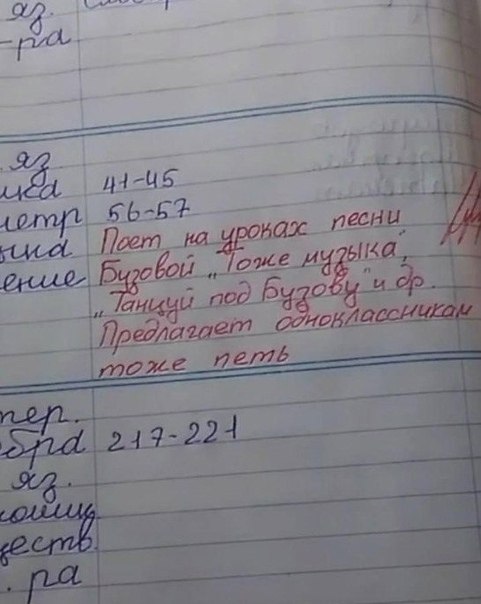 яз.
-ра
яз
ика 41-45
метр 56-57
ыка Поет на уроках песни
ение Бузовой „Тоже музыка",
„Танцуй под Бузову" и др.
Предлагает одноклассникам
тоже петь
тер.
бра 217-221
яз.
ществ.
. ра